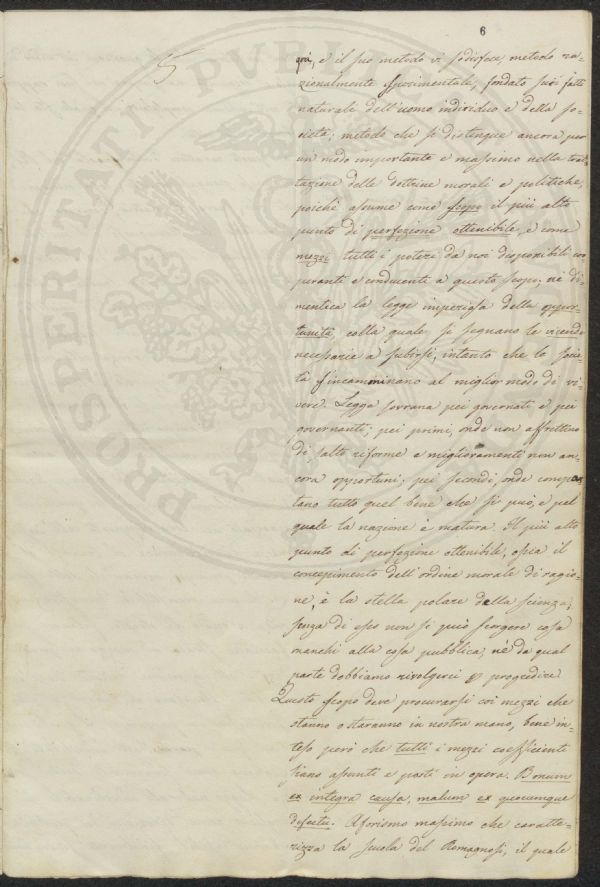 6
5
già, e il suo metodo vi sodisfece, metodo ra-
zionalmente sperimentale, fondato sui fatti
naturale dell'uomo individuo e della so-
cietà; metodo che si distingue ancora per
un modo importante e massimo nella trat-
tazione delle dottrine morali e politiche,
poichè assume come scopo il più alto
punto di perfezione ottenibile, e come
mezzi tutti i poteri da noi disponibili coo
peranti e conducenti a questo scopo; nè di-
mentica la legge imperiosa della oppor-
tunità, colla quale si segnano le vicende
necessarie a subirsi, intanto che le socie-
tà s'incamminano al miglior modo di vi-
vere. Legge sovrana pei governati e pei
governanti; pei primi, onde non affrettino
di salto riforme e miglioramenti non an-
cora opportuni; pei secondi, onde compar
tano tutto quel bene che si può, e pel
quale la nazione è matura. Il più alto
punto di perfezione ottenibile, ossia il
concepimento dell'ordine morale di ragio-
ne, è la stella polare della scienza;
senza di esso non si può scorgere cosa
manchi alla cosa pubblica, nè da qual
parte dobbiamo rivolgerci p progredire
Questo scopo deve procurarsi coi mezzi che
stanno o staranno in nostra mano, bene in-
teso però che tutti i mezzi coefficienti
siano assunti e posti in opera. Bonum
ex integra causa, malum ex quocumque
defectu. Aforismo massimo che caratte-
rizza la scuola del Romagnosi, il quale
PROSPERITATI PVBLICAE